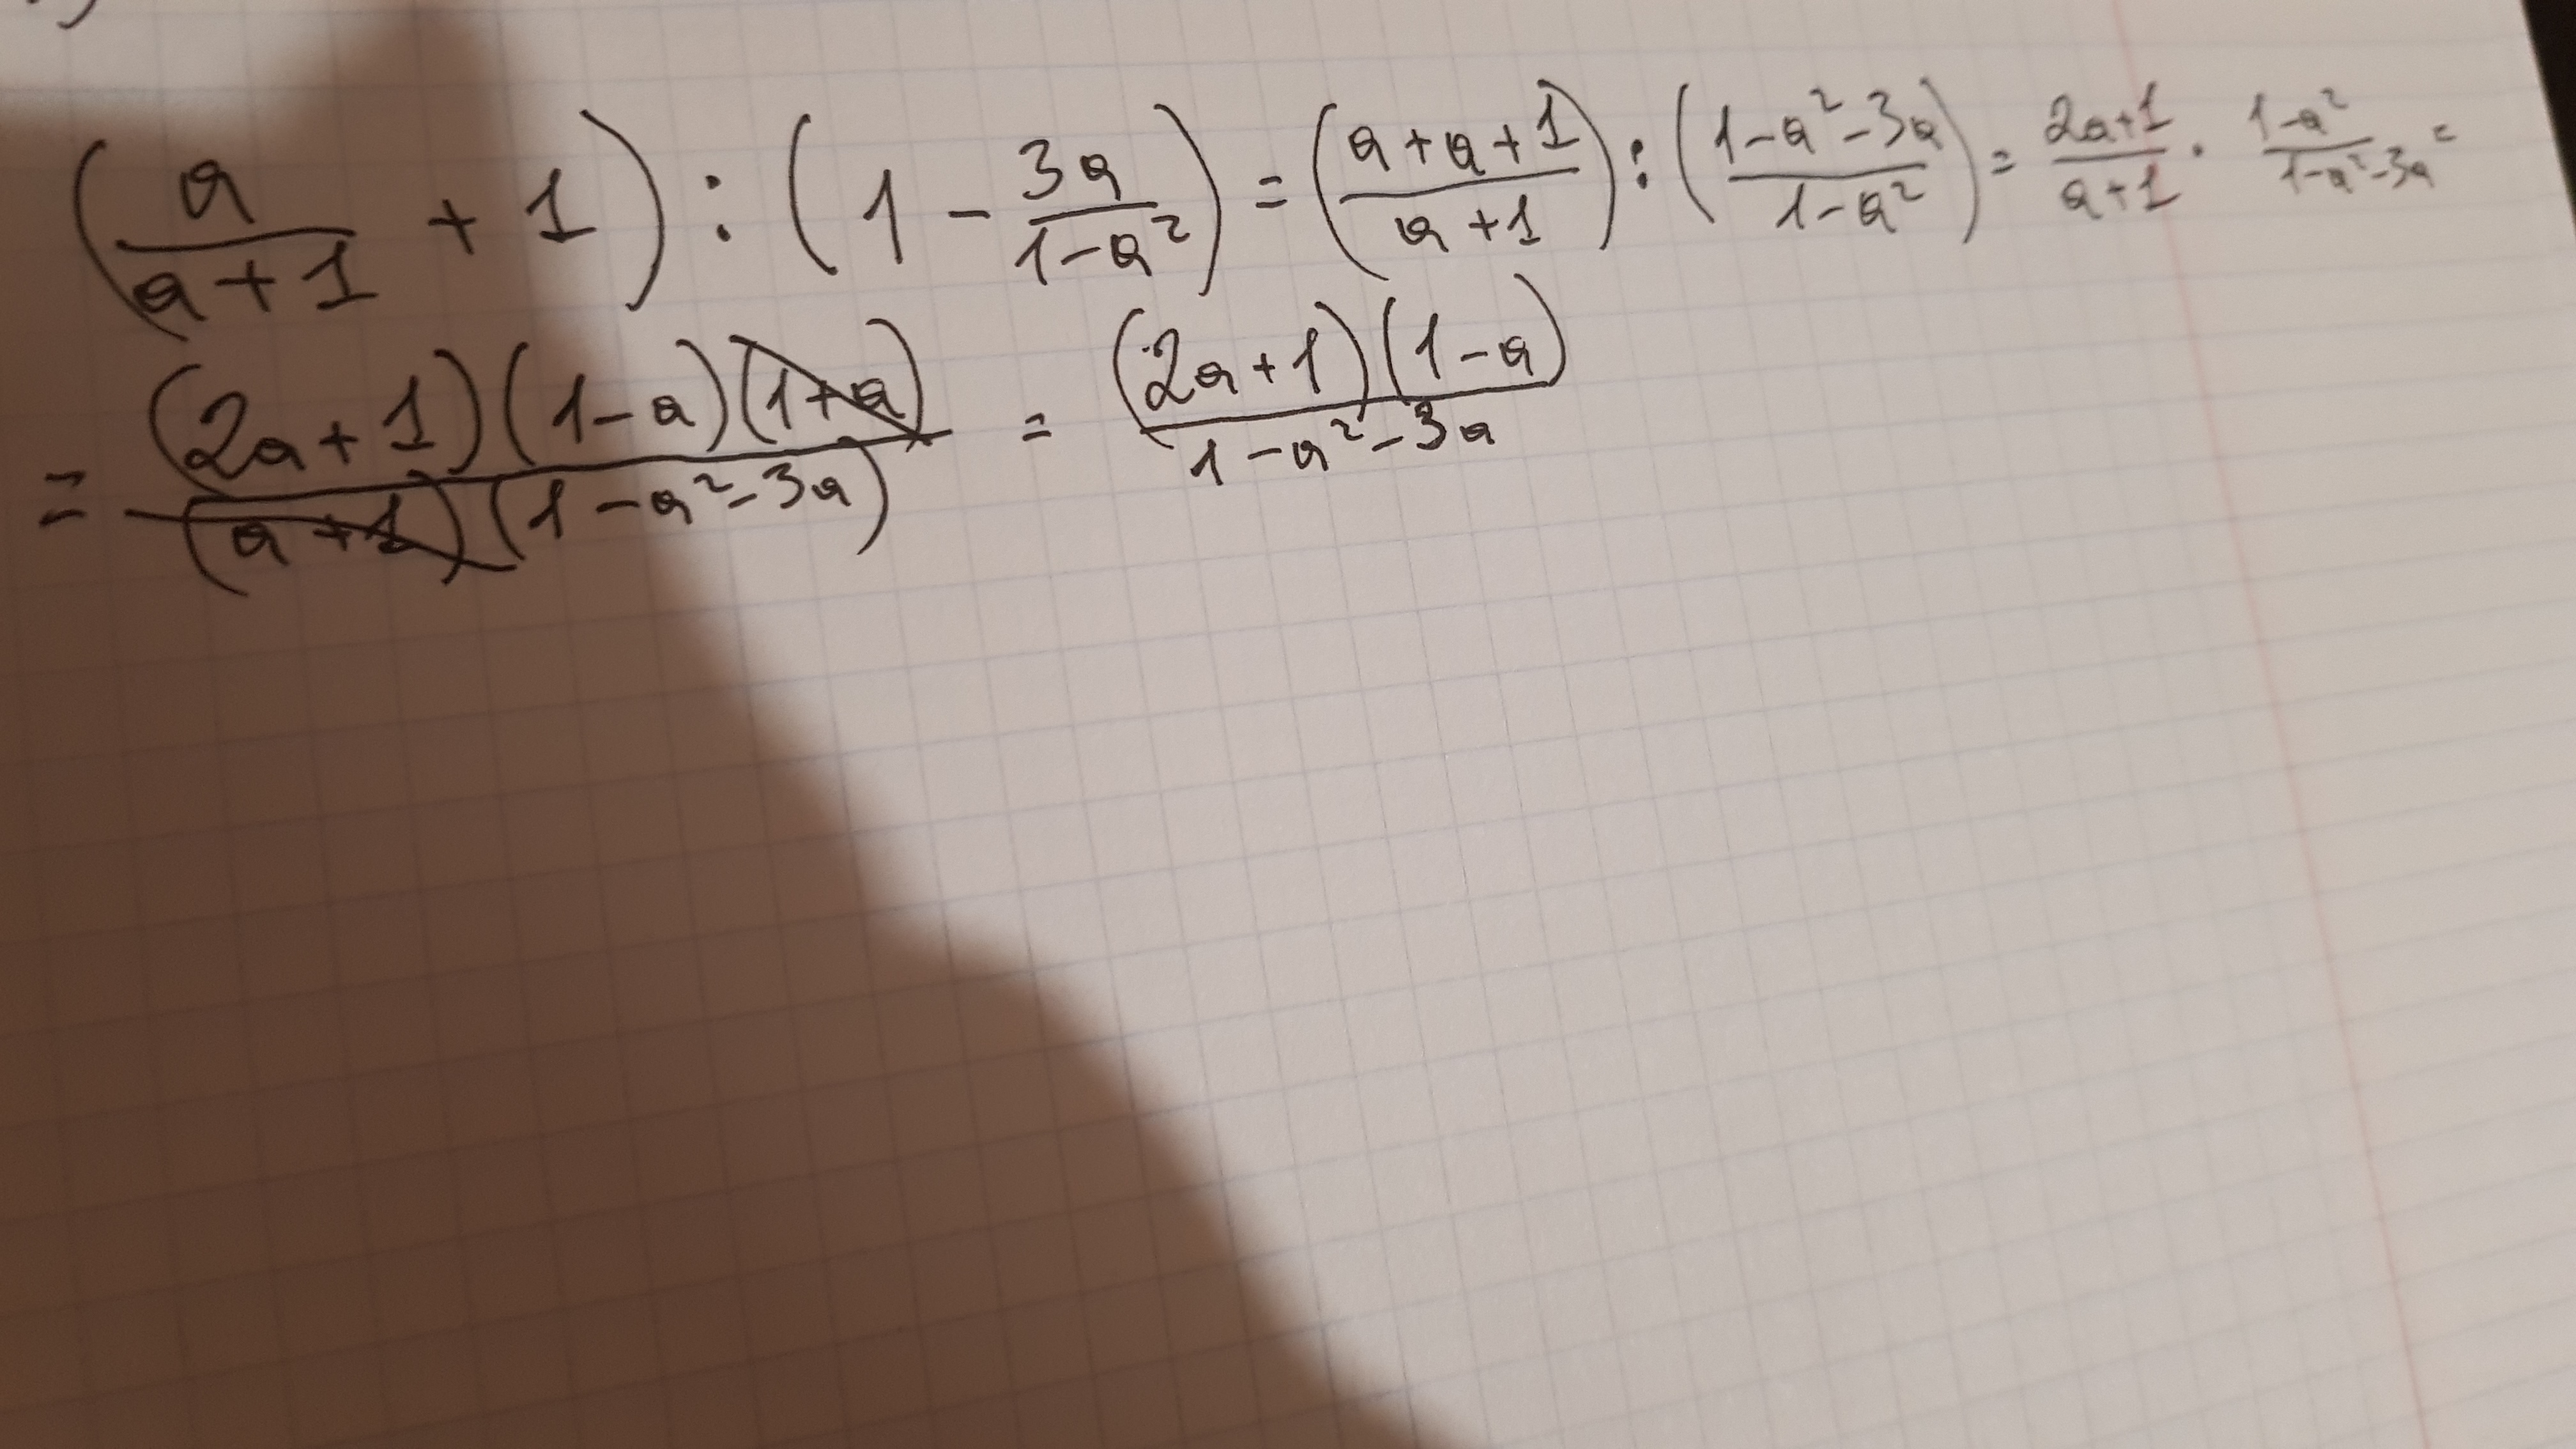 (a/(a+1) + 1) : (1 - 3a/(1-a²)) = ((a+a+1)/(a+1)) : ((1-a²-3a)/(1-a²)) = (2a+1)/(a+1) · (1-a²)/(1-a²-3a) =
= (2a+1)(1-a)(1+a)/((a+1)(1-a²-3a)) = (2a+1)(1-a)/(1-a²-3a)